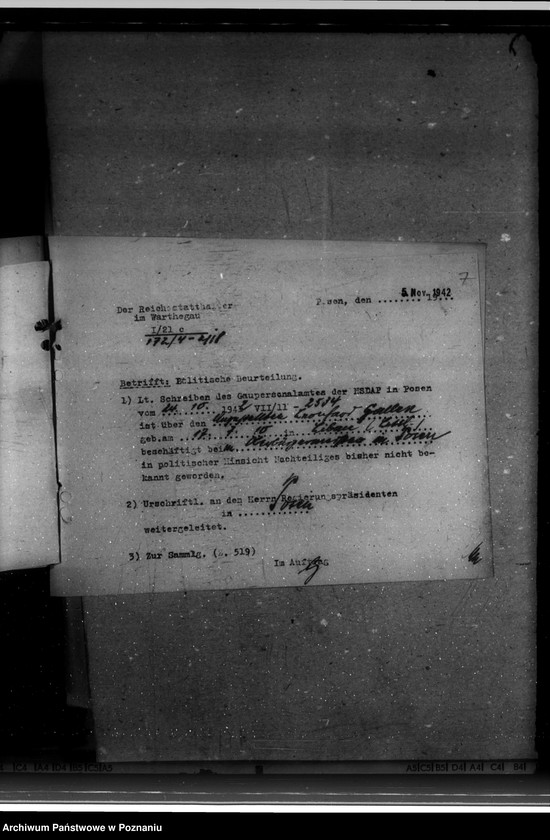 7
Der Reichsstatthalter
im Warthegau
I/21 c
172/4-2/18
Posen, den 5. Nov. 1942
Betrifft: Politische Beurteilung.
1) Lt. Schreiben des Gaupersonalamtes der NSDAP in Posen
vom 24. 10. 1942 VII/11 - 2514
ist über den Angestellten
geb.am 17. 9. 10 in Libau /
beschäftigt beim in Posen
in politischer Hinsicht Nachteiliges bisher nicht be-
kannt geworden.
2) Urschriftl. an den Herrn Regierungspräsidenten
in Posen
weitergeleitet.
3) Zur Sammlg. ( . 519)
Im Auftrag
A5 C5 B5 D4 A4 C4 B4
Archiwum Państwowe w Poznaniu